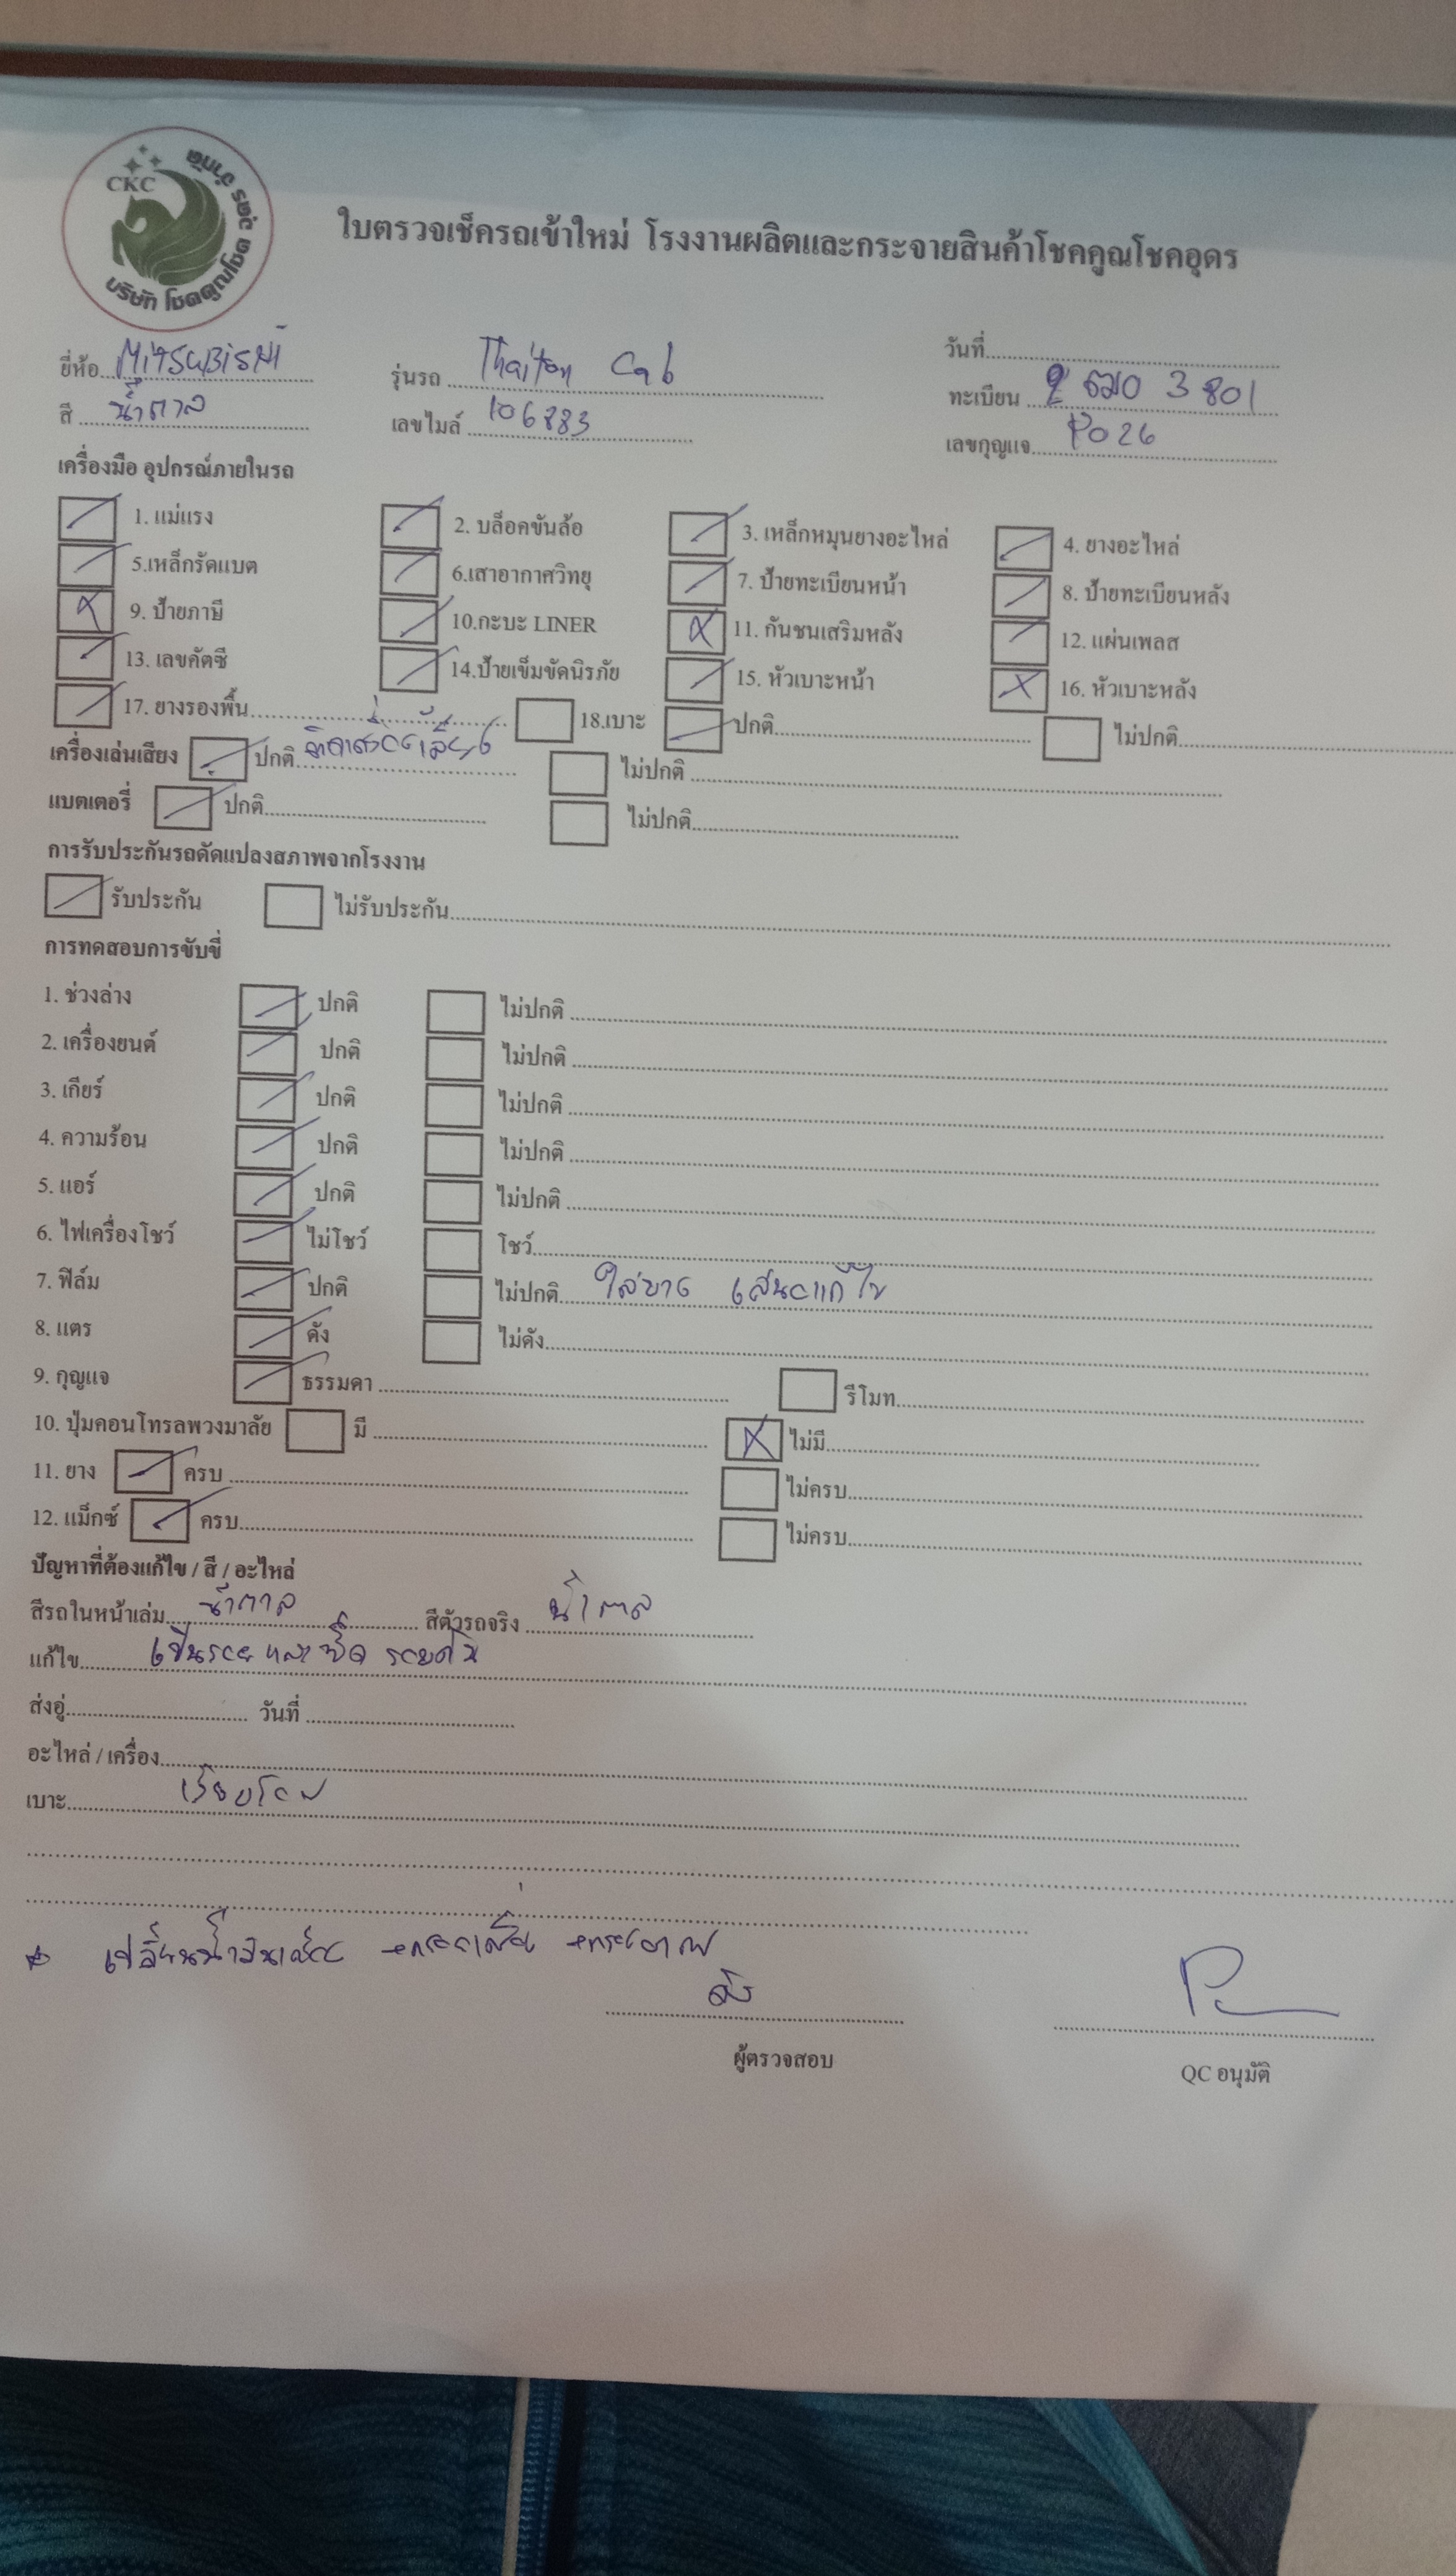 CKC
บริษัท โชคคูณโชค อุดร จำกัด
ใบตรวจเช็ครถเข้าใหม่ โรงงานผลิตและกระจายสินค้าโชคคูณโชคอุดร
ยี่ห้อ MiTSUBiSHi รุ่นรถ Thaiton Cab วันที่
สี น้ำตาล เลขไมล์ 106883 ทะเบียน 3801
เลขกุญแจ P026
เครื่องมือ อุปกรณ์ภายในรถ
1. แม่แรง 2. บล็อคขันล้อ 3. เหล็กหมุนยางอะไหล่ 4. ยางอะไหล่
5.เหล็กรัดแบต 6.เสาอากาศวิทยุ 7. ป้ายทะเบียนหน้า 8. ป้ายทะเบียนหลัง
9. ป้ายภาษี 10.กะบะ LINER 11. กันชนเสริมหลัง 12. แผ่นเพลส
13. เลขคัตซี 14.ป้ายเข็มขัดนิรภัย 15. หัวเบาะหน้า 16. หัวเบาะหลัง
17. ยางรองพื้น 18.เบาะ ปกติ ไม่ปกติ
เครื่องเล่นเสียง ปกติ ไม่ปกติ
แบตเตอรี่ ปกติ ไม่ปกติ
การรับประกันรถดัดแปลงสภาพจากโรงงาน
รับประกัน ไม่รับประกัน
การทดสอบการขับขี่
1. ช่วงล่าง ปกติ ไม่ปกติ
2. เครื่องยนต์ ปกติ ไม่ปกติ
3. เกียร์ ปกติ ไม่ปกติ
4. ความร้อน ปกติ ไม่ปกติ
5. แอร์ ปกติ ไม่ปกติ
6. ไฟเครื่องโชว์ ไม่โชว์ โชว์
7. ฟิล์ม ปกติ ไม่ปกติ
8. แตร ดัง ไม่ดัง
9. กุญแจ ธรรมดา รีโมท
10. ปุ่มคอนโทรลพวงมาลัย มี ไม่มี
11. ยาง ครบ ไม่ครบ
12. แม็กซ์ ครบ ไม่ครบ
ปัญหาที่ต้องแก้ไข / สี / อะไหล่
สีรถในหน้าเล่ม น้ำตาล สีตัวรถจริง น้ำตาล
แก้ไข
ส่งอู่ วันที่
อะไหล่ / เครื่อง
เบาะ เรียบร้อย
ผู้ตรวจสอบ QC อนุมัติ